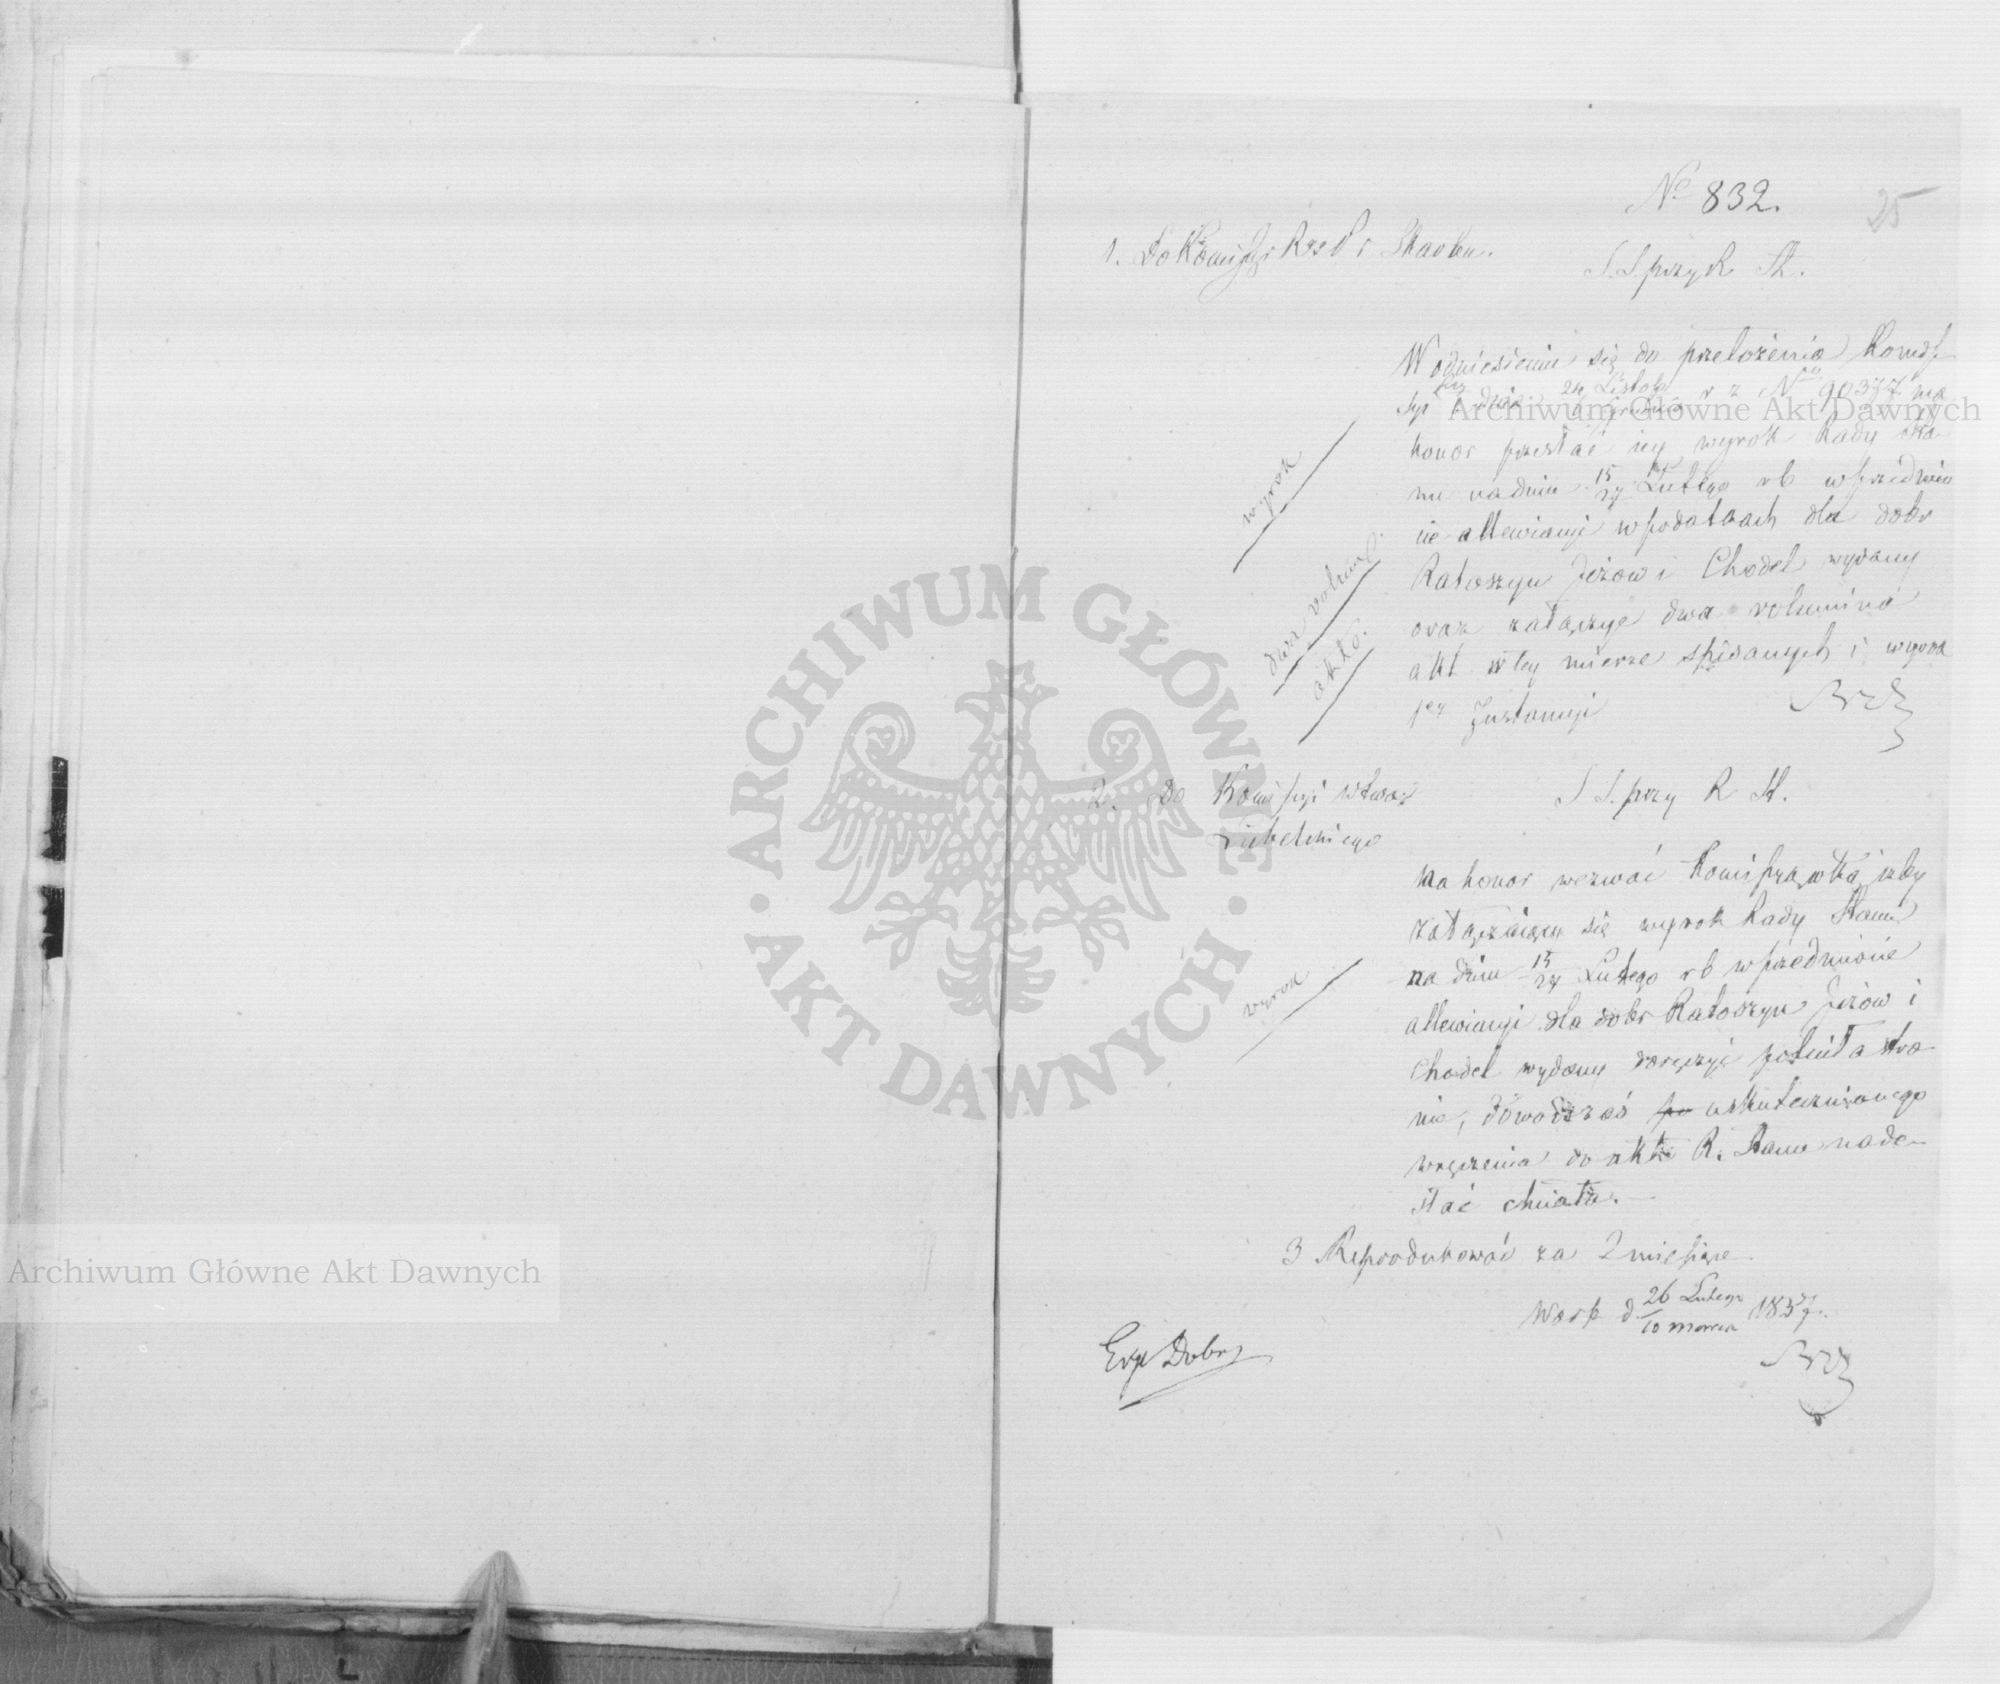 No 832.
25
1. Do Komissyi Rząd i Skarbu.
S. S. przy R St.
W odniesieniu się do przełożenia Komis-
syi z dnia 24 Listop r z No 90377 ma
honor przesłać iey wyrok Rady Sta-
nu na dniu 15/27 Lutego rb w przedmio
cie allewiacyi w podatkach dla dobr
Ratoszyn Jeżow i Chodel wydany
oraz załączyć dwa volumina
akt w tey mierze spisanych i wyrok
1ey Instancyi
wyrok
dwa volumi.
akto.
2. Do Komissyi Wdwa
Lubelskiego
S S. przy R St.
Ma honor wezwać Komissyą Wką iżby
załączaiący się wyrok Rady Stanu
na dniu 15/27 Lutego rb w przedmiocie
allewiacyi dla dobr Ratoszyn Jeżów i
Chodel wydany doręczyć poleciła stro-
nie, dowód zaś uskutecznionego
wręczenia do akt R. Stanu nade-
słać chciała.
wyrok
3 Reprodukować za 2 miesiące
Warsz d. 26 Lutego/10 marca 1837.
Exp Dobr
Archiwum Główne Akt Dawnych
Archiwum Główne Akt Dawnych
ARCHIWUM GŁÓWNE
AKT DAWNYCH